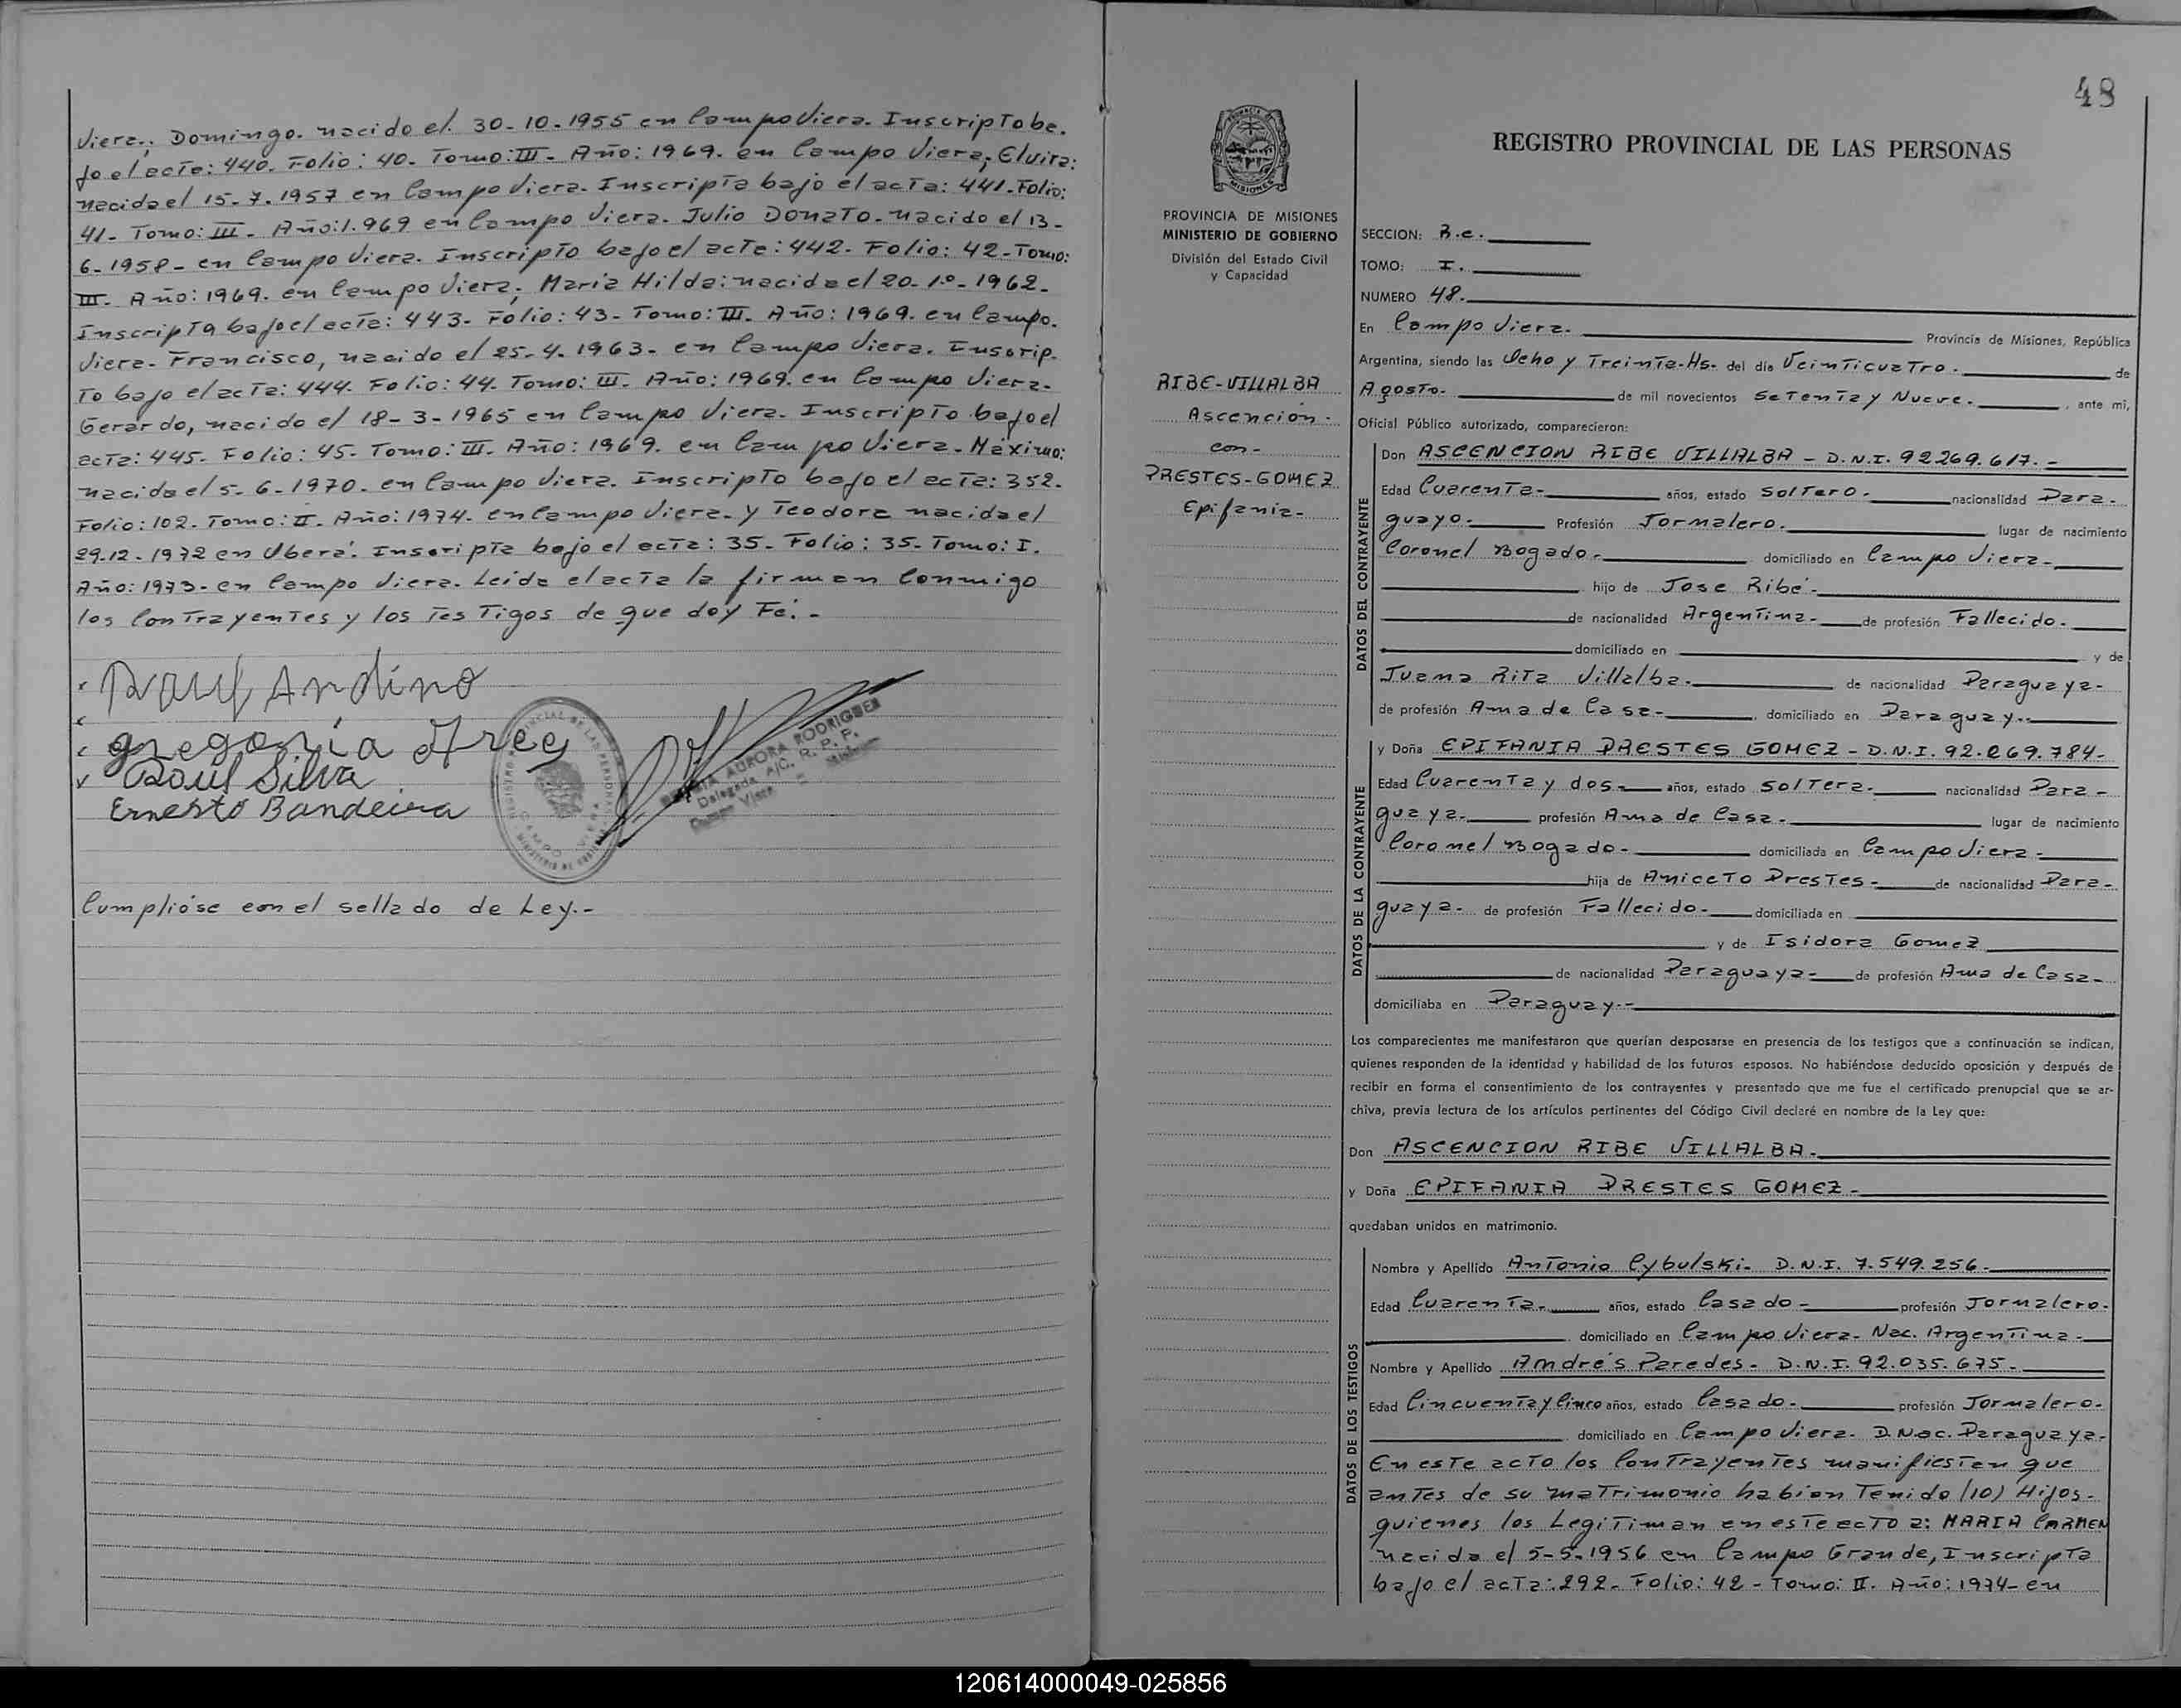 Viera; Domingo. nacido el. 30-10-1955 en Campo Viera. Inscripto ba.
jo el acta: 440. Folio: 40. Tomo: III - Año: 1969. en Campo Viera; Elvira:
nacida el 15-7-1957 en Campo Viera. Inscripta bajo el acta: 441. Folio:
41- Tomo: III - Año: 1.969 en Campo Viera. Julio Donato. nacido el 13-
6-1958- en Campo Viera. Inscripto bajo el acta: 442- Folio: 42-Tomo:
III. Año: 1969. en Campo Viera; Maria Hilda: nacida el 20-1º-1962-
Inscripta bajo el acta: 443- Folio: 43- Tomo: III. Año: 1969. en Campo.
Viera- Francisco, nacido el 25-4-1963- en Campo Viera. Inscrip-
to bajo el acta: 444. Folio: 44. Tomo: III. Año: 1969. en Campo Viera-
Gerardo, nacido el 18-3-1965 en Campo Viera. Inscripto bajo el
acta: 445- Folio: 45- Tomo: III. Año: 1969. en Campo Viera. Máximo:
nacido el 5-6-1970. en Campo Viera. Inscripto bajo el acta: 352.
Folio: 102. Tomo: II. Año: 1974. en Campo Viera- y Teodora nacida el
29.12-1972 en Oberá. Inscripta bajo el acta: 35- Folio: 35- Tomo: I.
Año: 1973- en Campo Viera. Leida el acta la firman Conmigo
los Contrayentes y los Testigos de que doy Fé.-
Raul Andino
gregoria
Raul Silva
Ernesto Bandeira
MARIA AURORA RODRIGUEZ
Delegada A/C. R. P. P.
Cumplióse con el sellado de Ley.-
48
REGISTRO PROVINCIAL DE LAS PERSONAS
PROVINCIA DE MISIONES
MINISTERIO DE GOBIERNO
División del Estado Civil
y Capacidad
RIBE-VILLALBA
Ascención-
con-
PRESTES-GOMEZ
Epifania-
SECCION: R.c.
TOMO: I.
NUMERO 48.
En Campo Viera. Provincia de Misiones, República
Argentina, siendo las Ocho y Treinta-Hs- del día Veinticuatro. de
Agosto. de mil novecientos Setenta y Nueve. , ante mí,
Oficial Público autorizado, comparecieron:
DATOS DEL CONTRAYENTE
Don ASCENCION RIBE VILLALBA - D.N.I. 92.269.617.-
Edad Cuarenta- años, estado Soltero. nacionalidad Para-
guayo- Profesión Jornalero. lugar de nacimiento
Coronel Bogado- domiciliado en Campo Viera-
hijo de Jose Ribé-
de nacionalidad Argentina- de profesión Fallecido-
domiciliado en y de
Juana Rita Villalba. de nacionalidad Paraguaya-
de profesión Ama de Casa- domiciliado en Paraguay.-
DATOS DE LA CONTRAYENTE
y Doña EPIFANIA PRESTES GOMEZ - D.N.I. 92.269.784-
Edad Cuarenta y dos- años, estado Soltera. nacionalidad Para-
guaya- profesión Ama de Casa- lugar de nacimiento
Coronel Bogado- domiciliada en Campo Viera-
hija de Aniceto Prestes- de nacionalidad Para-
guaya- de profesión Fallecido- domiciliada en
y de Isidora Gomez
de nacionalidad Paraguaya- de profesión Ama de Casa-
domiciliaba en Paraguay.-
Los comparecientes me manifestaron que querían desposarse en presencia de los testigos que a continuación se indican,
quienes responden de la identidad y habilidad de los futuros esposos. No habiéndose deducido oposición y después de
recibir en forma el consentimiento de los contrayentes y presentado que me fue el certificado prenupcial que se ar-
chiva, previa lectura de los artículos pertinentes del Código Civil declaré en nombre de la Ley que:
Don ASCENCION RIBE VILLALBA.
y Doña EPIFANIA PRESTES GOMEZ-
quedaban unidos en matrimonio.
DATOS DE LOS TESTIGOS
Nombre y Apellido Antonio Cybulski- D.N.I. 7.549.256-
Edad Cuarenta- años, estado Casado- profesión Jornalero-
domiciliado en Campo Viera- Nac. Argentina-
Nombre y Apellido Andrés Paredes- D.N.I. 92.035.675-
Edad Cincuenta y Cinco años, estado Casado- profesión Jornalero-
domiciliado en Campo Viera- D.Nac. Paraguaya-
En este acto los Contrayentes manifiestan que
antes de su matrimonio habian Tenido (10) Hijos-
quienes los Legitiman en este acto a: MARIA CARMEN
nacida el 5-5-1956 en Campo Grande, Inscripta
bajo el acta: 292- Folio: 42- Tomo: II. Año: 1974- en
120614000049-025856